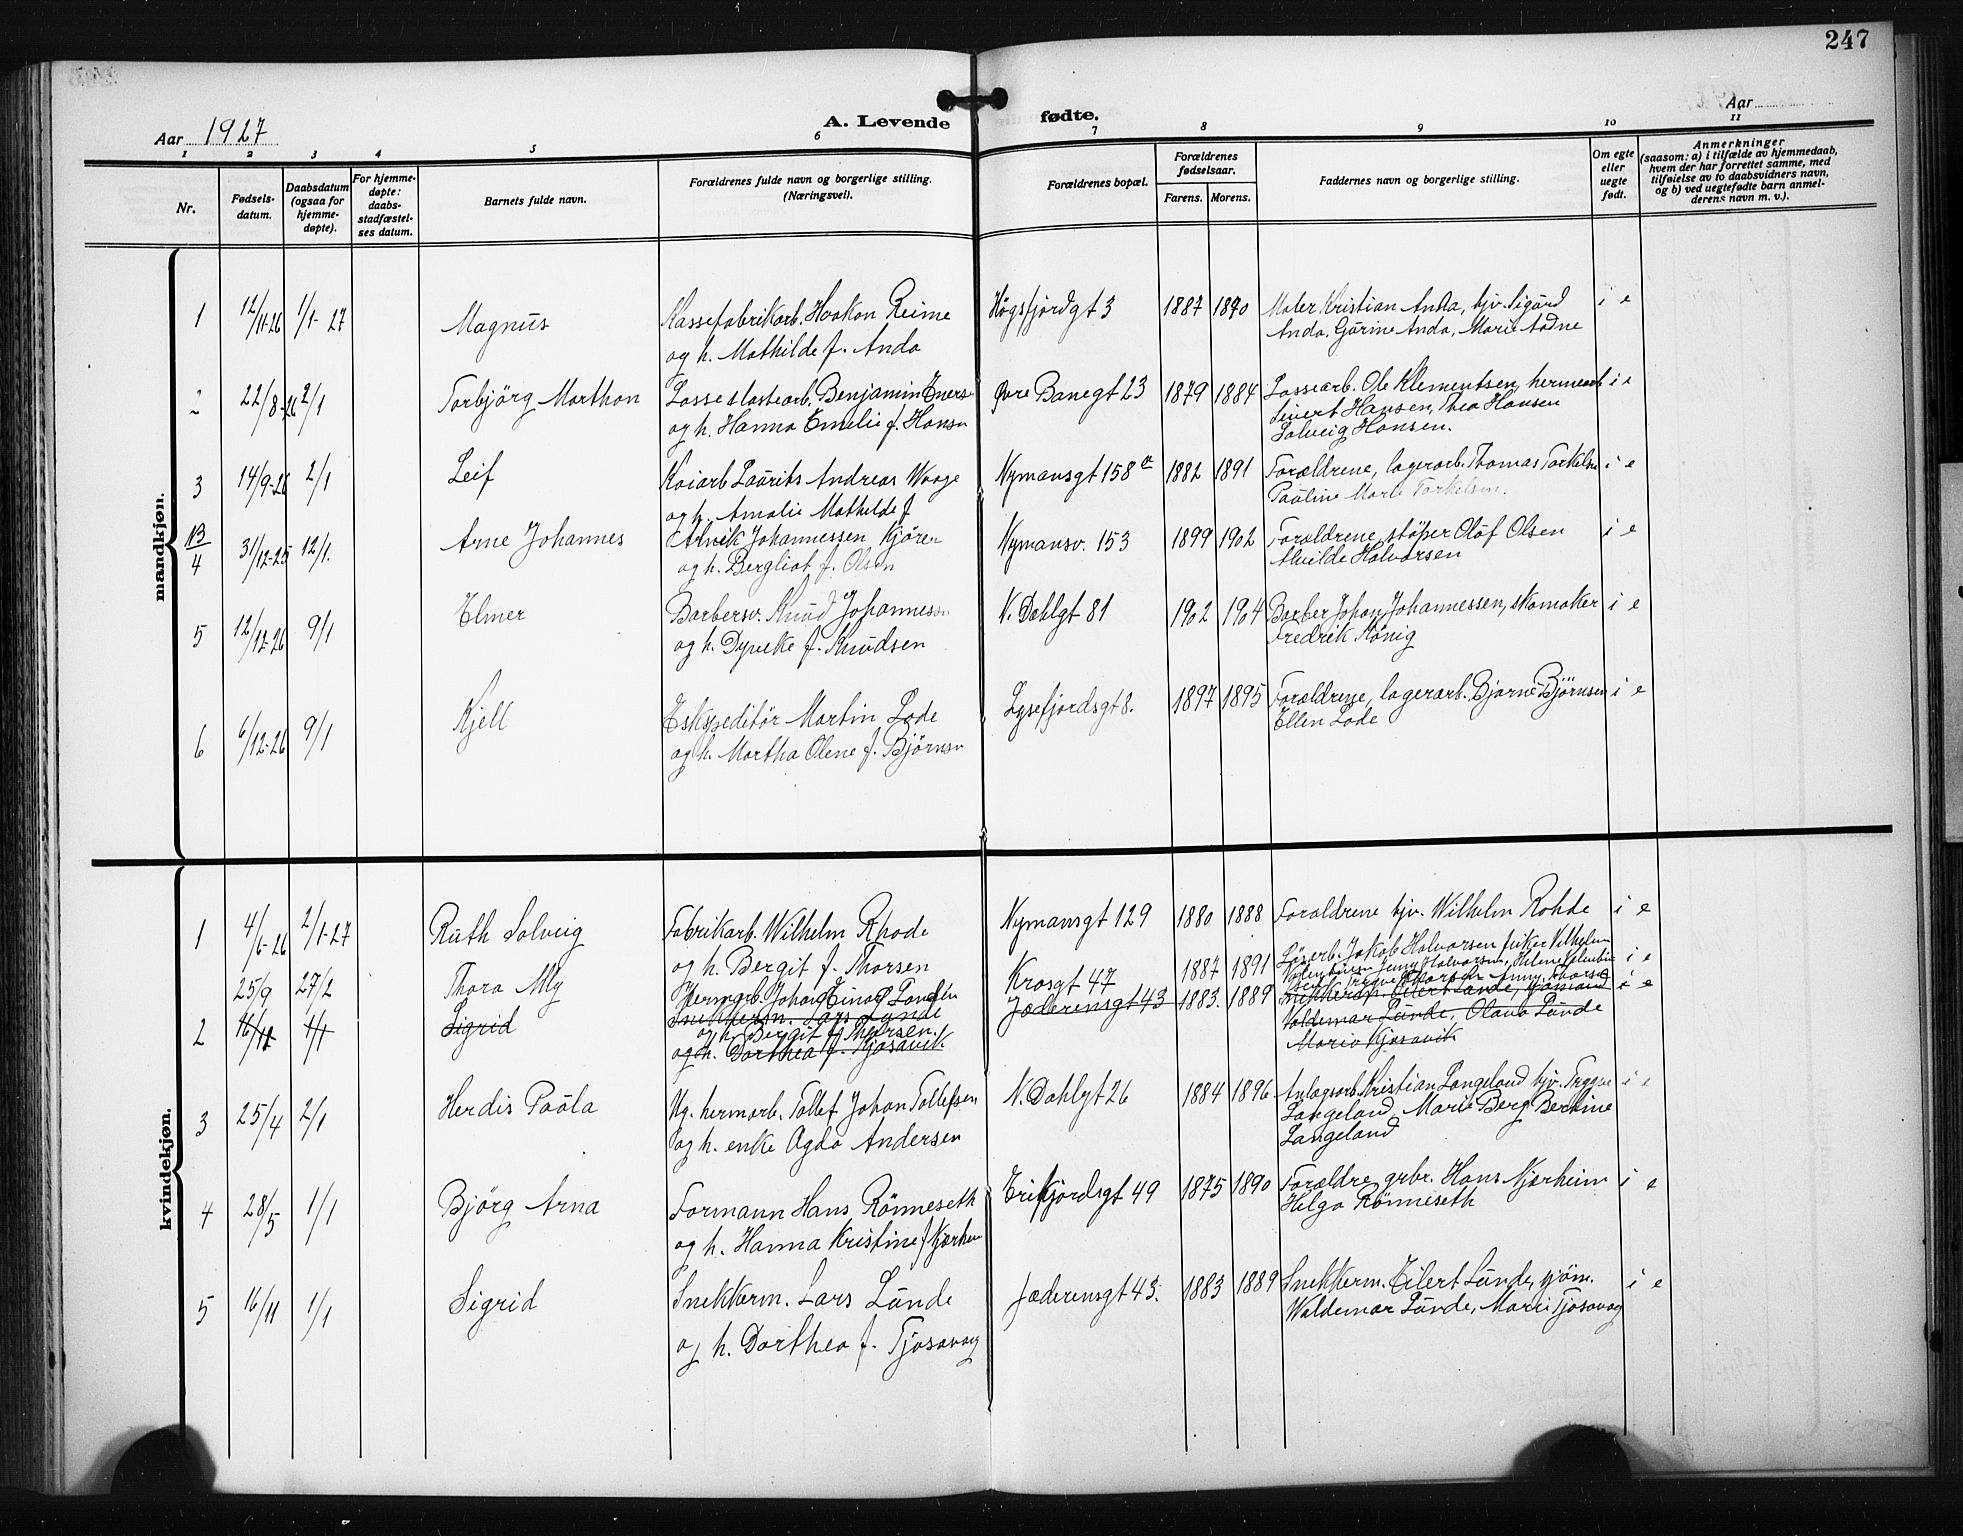 247
Aar 1927
A. Levende fødte.
Aar
1 2 3 4 5 6 7 8 9 10 11
Nr.
Fødsels-
datum.
Daabsdatum
(ogsaa for
hjemme-
døpte).
For hjemme-
døpte:
daabs-
stadfæstel-
ses datum.
Barnets fulde navn.
Forældrenes fulde navn og borgerlige stilling.
(Næringsvei).
Forældrenes bopæl.
Forældrenes
fødselsaar.
Farens. Morens.
Faddernes navn og borgerlige stilling.
Om egte
eller
uegte
født.
Anmerkninger
(saasom: a) i tilfælde av hjemmedaab,
hvem der har forrettet samme, med
tilføielse av to daabsvidners navn,
og b) ved uegtefødte barn anmel-
derens navn m. v.).
mandkjøn.
1 12/11-26 1/1-27 Magnus Kassefabrikarb. Haakon Reime Högsfjordgt 3 1887 1890 Maler Kristian Anda, hjv. Sigurd i e
og h. Mathilde f. Anda Anda, Gurine Anda, Marie Aadne
2 22/8-26 2/1 Torbjörg Marthon Losse & lastearb. Benjamin Eners Øvre Banegt 23 1879 1884 Lossearb. Ole Klementsen, hermearb i e
og h. Hanna Emelie f. Hansn Sivert Hansen, Thea Hansen
Solveig Hansen.
3 14/9-26 2/1 Leif Kaiarb Laurits Andreas Waage Nymansgt 158 a 1882 1891 Forældrene, lagerarb. Thomas Torkelsn i e
og h. Amalie Mathilde f Pauline Marie Torkelsen.
NB
4 31/12-25 12/1. Arne Johannes Johannessen Kjörer Nymansv. 153 1899 1902 Forældrene, støper Olaf Olsen i e
og h. Bergliot f. Olsen Alvilde Halvorsen
5 12/12-26 9/1 Elmer Barbersv. Knud Johannessn N. Dahlgt 81 1902 1904 Barber Johan Johannessen, skomaker i e
og h. Dyveke f. Knudsen Fredrik König
6 6/12-26 9/1 Kjell Ekspeditör Martin Lode Lysefjordsgt 8. 1897 1895 Forældrene, lagerarb. Bjarne Björnsen i e
og h. Martha Olene f. Björnsn Ellen Lode
kvindekjøn.
1 4/6-26 2/1-27 Ruth Solveig Fabrikarb. Wilhelm Rhode Nymansgt 129 1880 1888 Forældrene hjv. Wilhelm Rohde i e
og h. Bergit f. Thorsen
25/9 27/2 Thora My Hermarb. Johan Einar Krosgt 47 1887 1891 Jakob Halvorsen i e
2 16/11 1/1 Sigrid Snekkerm. Lars Lunde Jæderensgt 43 1883. 1889 Snekkerm. Eilert Lunde, sjömand i e
og h. Bergit f. Thorsen. Valdemar Lunde, Olava Lunde
og h. Dorthea f. Tjosavik Marie Kjosavik
3 25/4 2/1 Herdis Paula Ug. hermarb. Tollef Johan Tollefsen N. Dahlgt 26 1884 1896 Anlagsarb. Kristian Langeland hjv. Trygve i e
og h. enke Agda Andersen Langeland, Marie Berg, Bertine
Langeland
4 28/5 1/1 Björg Arna Formann Hans Rönneseth Erikfjordsgt 49 1875 1890 Forældre grbr. Hans Njærheim i e
og h. Hanna Kristine f Njærheim Helga Rönneseth
5 16/11 1/1 Sigrid Snekkerm. Lars Lunde Jæderensgt 43. 1883 1889 Snekkerm. Eilert Lunde, sjöm. i e
og h. Dorthea f. Tjosavag Waldemar Lunde, Marie Tjosavag